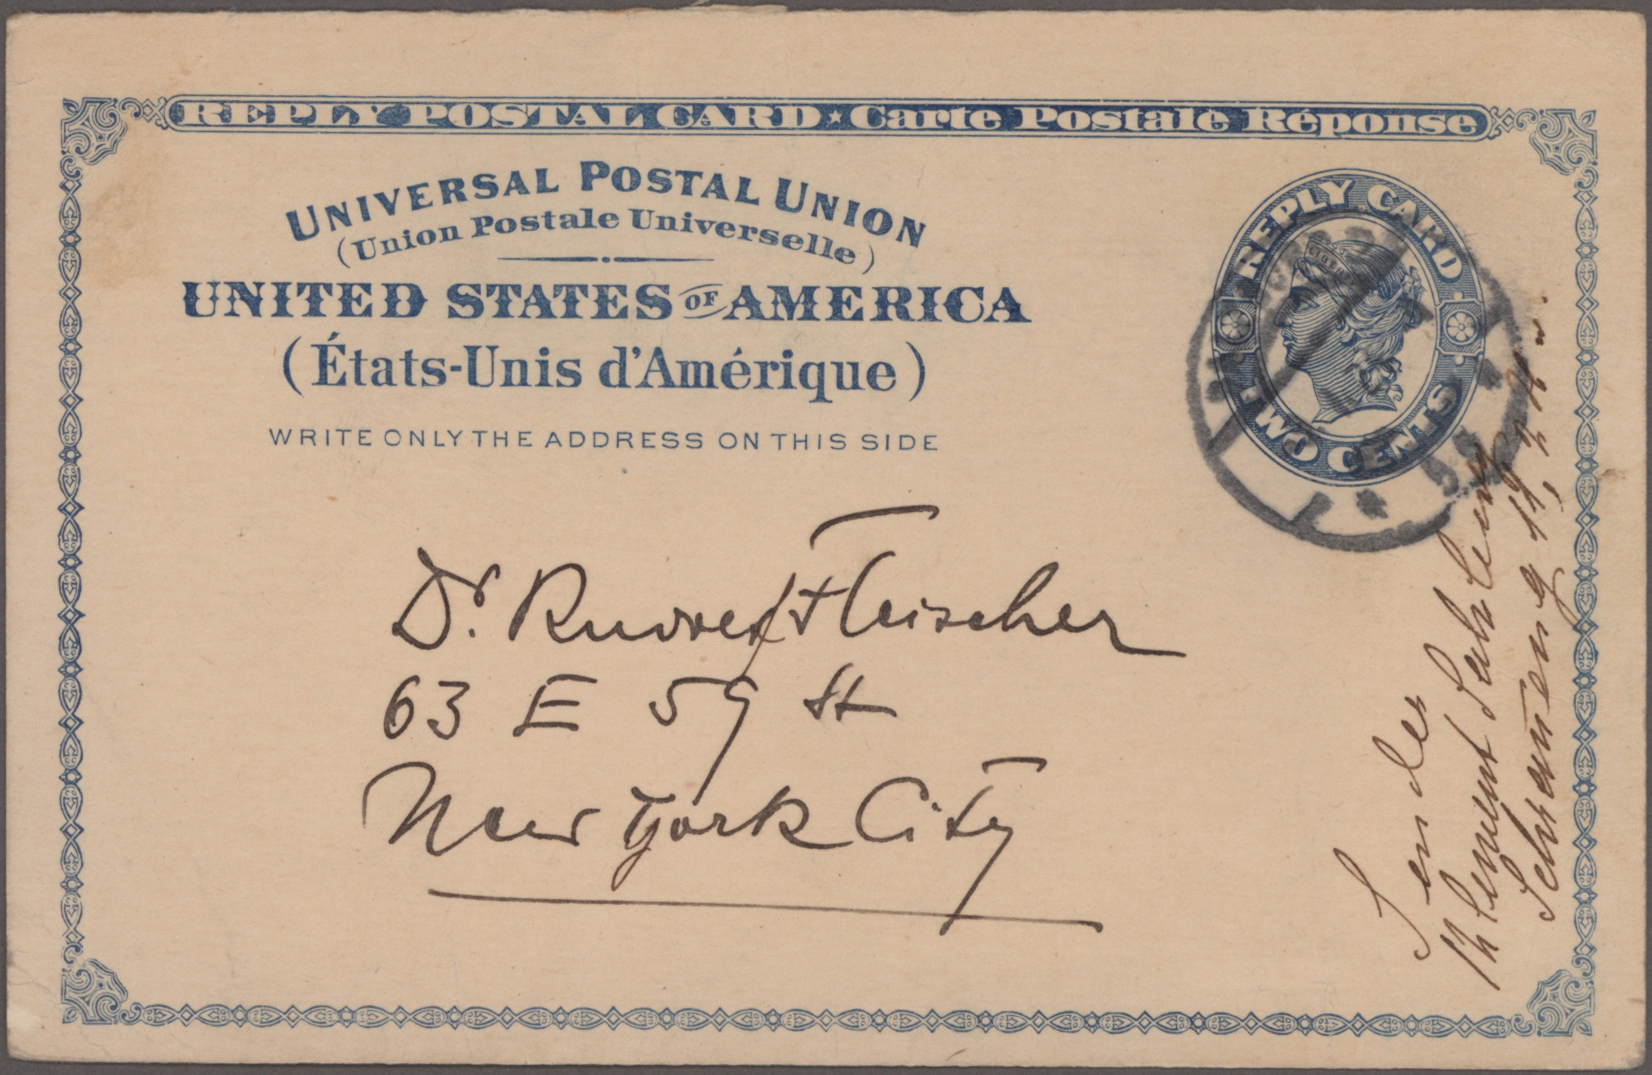 REPLY POSTAL CARD ★ Carte Postale Réponse
UNIVERSAL POSTAL UNION
(Union Postale Universelle)
UNITED STATES OF AMERICA
(États-Unis d'Amérique)
WRITE ONLY THE ADDRESS ON THIS SIDE
REPLY CARD
TWO CENTS
Dr. Fleischer
63 E 59 St
New York City